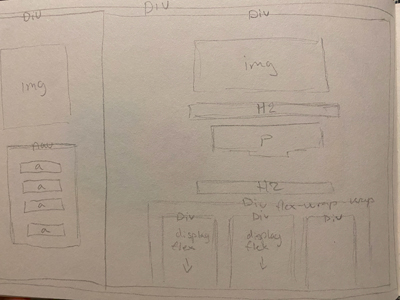 Div
Div
img
nav
a
a
a
a
Div
img
H2
P
H2
Div flex-wrap wrap
Div
display
flex
Div
display
flex
Div